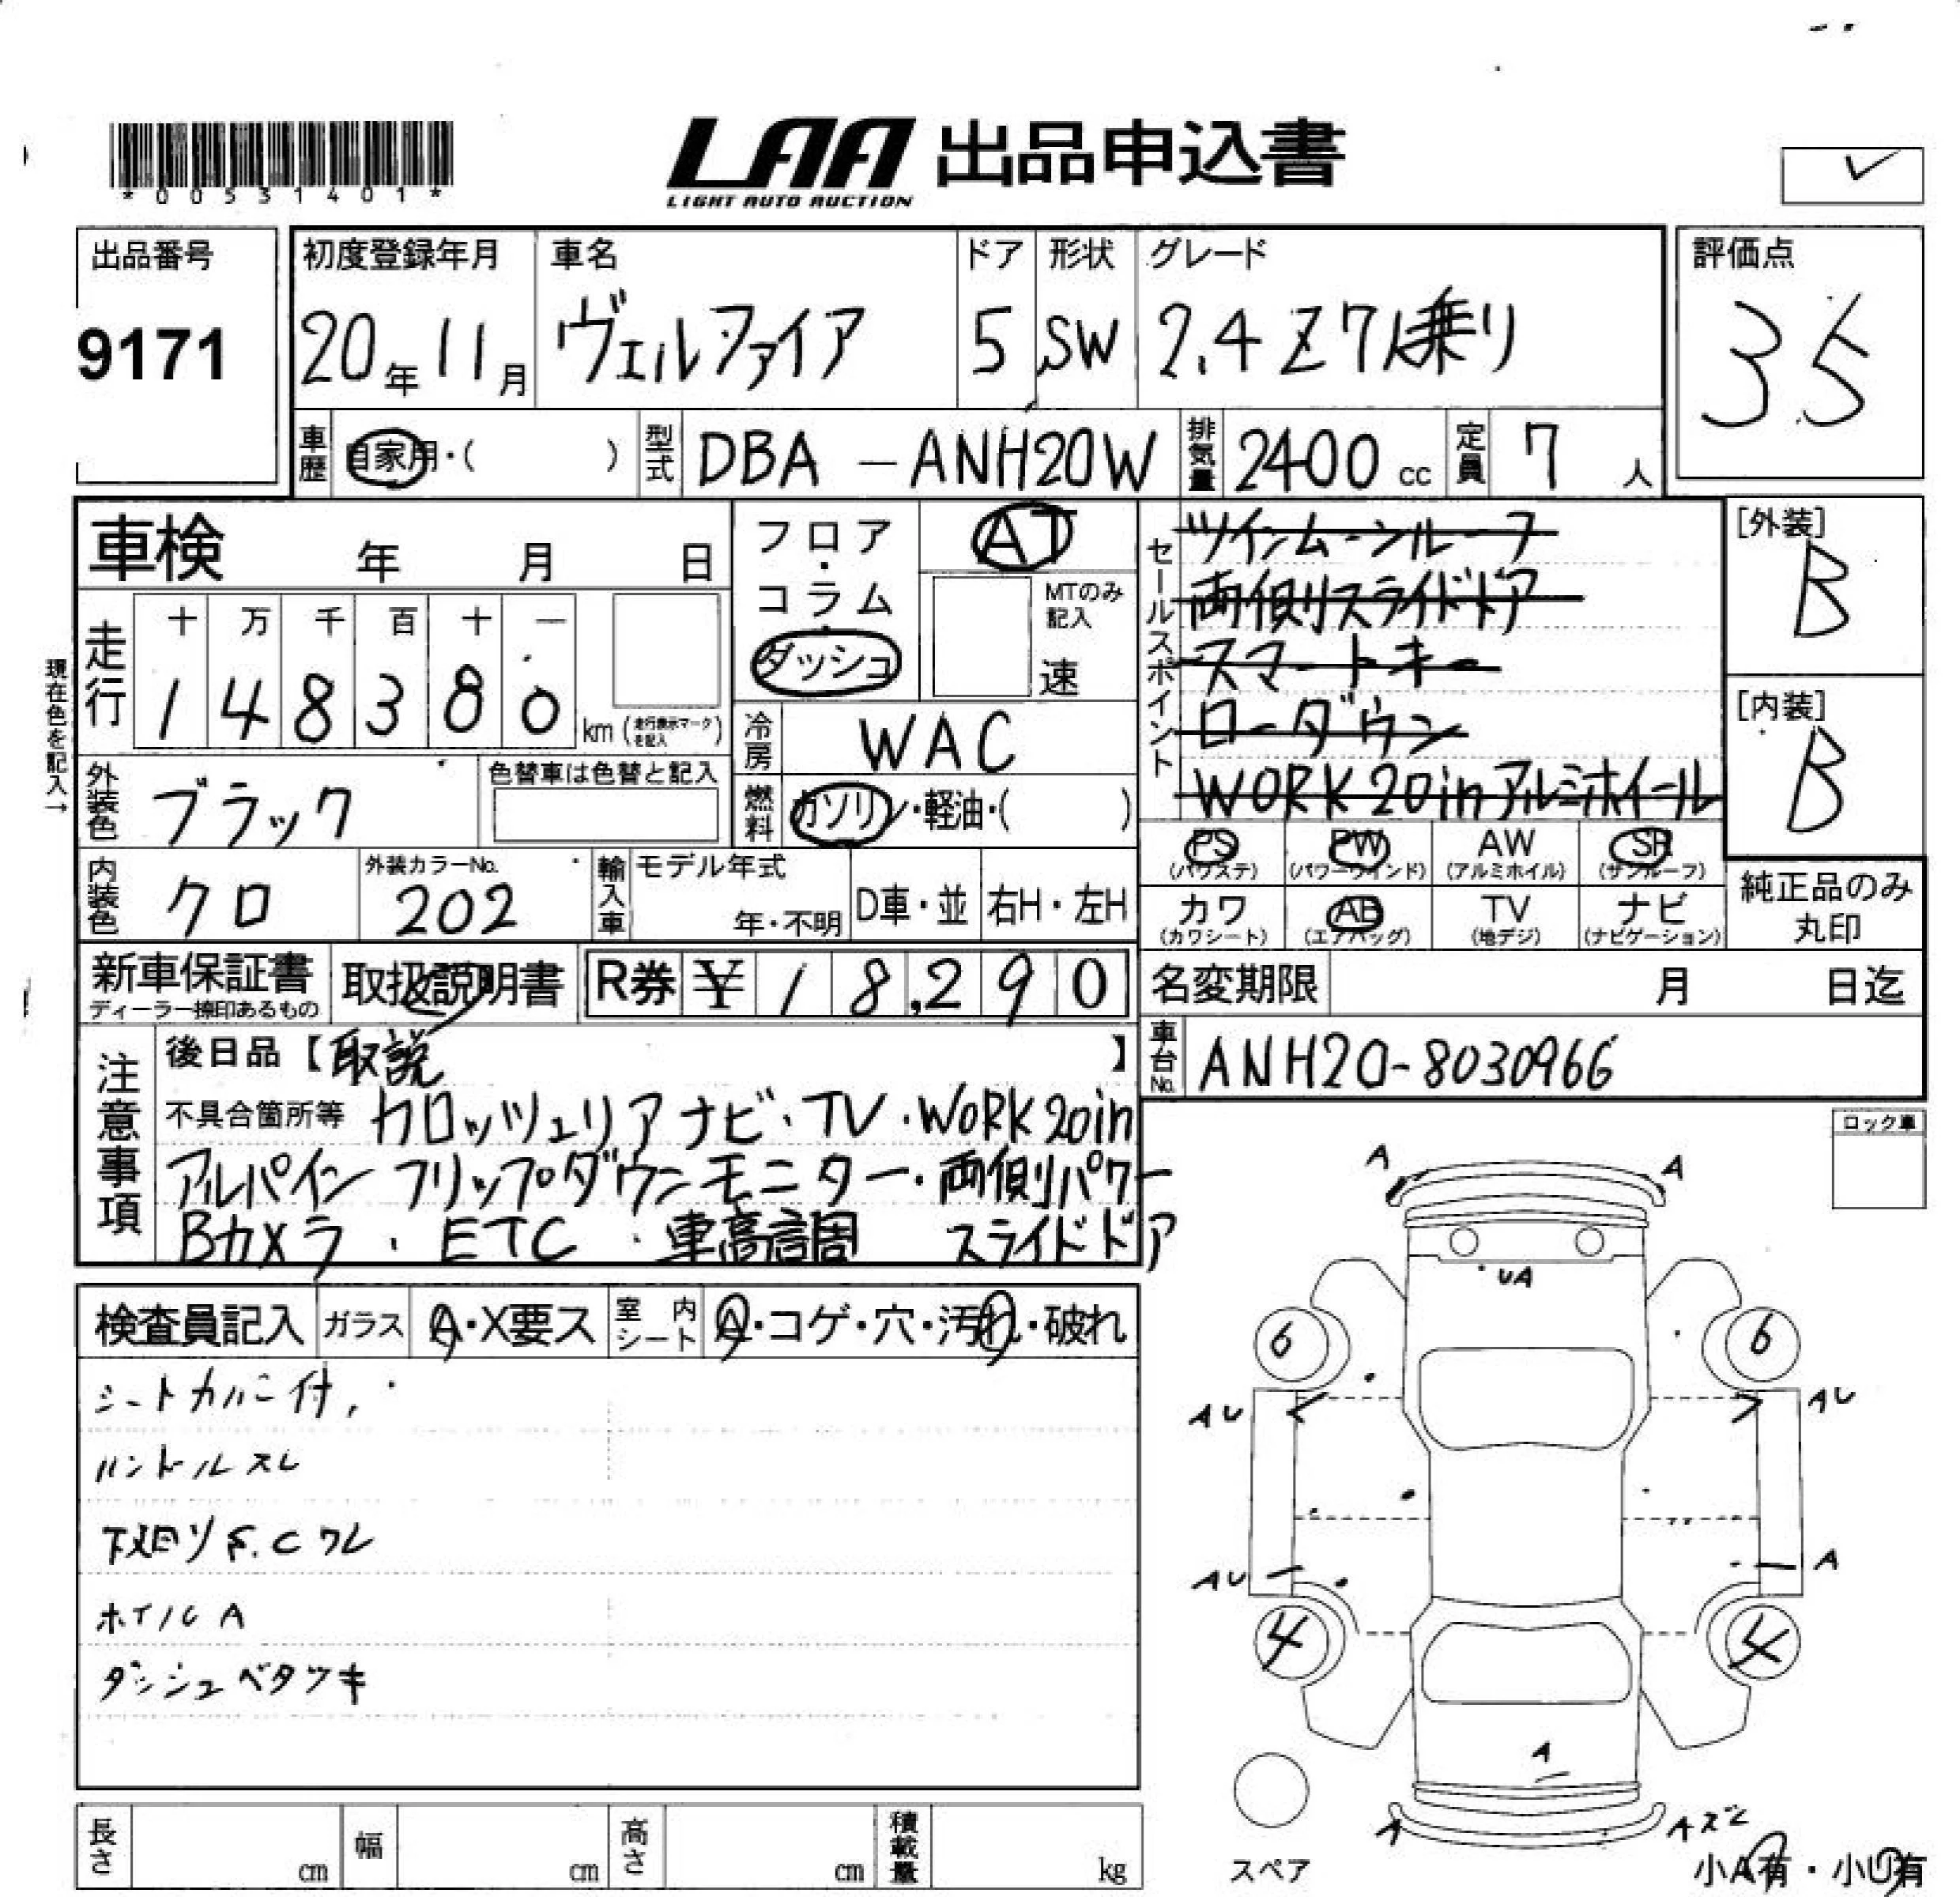 *00531401*
LAA 出品申込書
LIGHT AUTO AUCTION
出品番号
9171
初度登録年月
20年11月
車名
ヴェルファイア
ドア
5
形状
SW
グレード
2.4 Z 7人乗り
評価点
3.5
車歴 自家用・( )
型式 DBA-ANH20W
排気量 2400 cc
定員 7 人
車検 年 月 日
フロア・コラム・ダッシュ
AT
MTのみ記入
速
現在色を記入→
走行
十 万 千 百 十 一
1 4 8 3 8 0 km (走行表示マークを記入)
冷房 WAC
外装色 ブラック
色替車は色替と記入
燃料 ガソリン・軽油・( )
内装色 クロ
外装カラーNo. 202
輸入車 モデル年式
年・不明
D車・並
右H・左H
セールスポイント
ツインムーンルーフ
両側スライドドア
スマートキー
ローダウン
WORK 20inアルミホイール
[外装]
B
[内装]
B
PS (パワステ)
PW (パワーウインド)
AW (アルミホイル)
SR (サンルーフ)
カワ (カワシート)
AB (エアバッグ)
TV (地デジ)
ナビ (ナビゲーション)
純正品のみ
丸印
新車保証書
ディーラー捺印あるもの
取扱説明書
R券 ¥18,290
名変期限 月 日迄
車台No. ANH20-8030966
注意事項
後日品【取説 】
不具合箇所等 カロッツェリアナビ・TV・WORK 20in
アルパイン フリップダウンモニター・両側パワー
Bカメラ・ETC・車高調 スライドドア
ロック車
検査員記入
ガラス A・X要ス
室内シート A・コゲ・穴・汚れ・破れ
シートカバー付、
ハンドルスレ
下廻りS.Cワレ
ホイルA
ダッシュベタツキ
A A
UA
6 6
AU AU
AU A
4 4
A
A Aズレ
スペア
小A有・小U有
長さ cm
幅 cm
高さ cm
積載量 kg